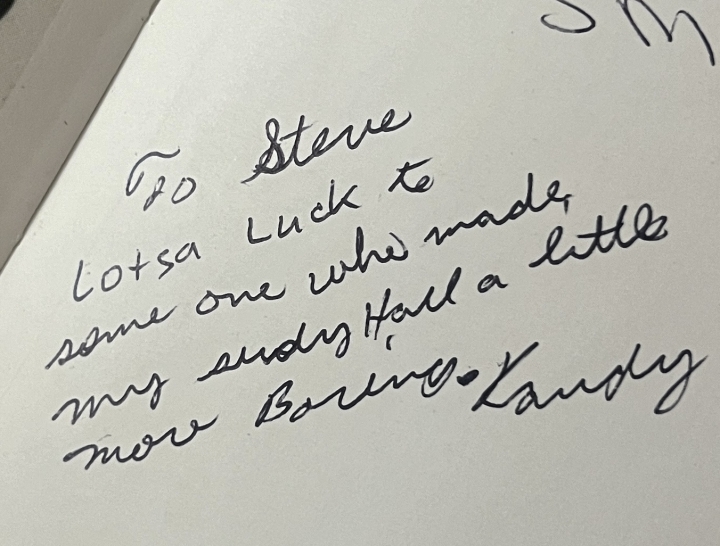 To Steve
Lotsa Luck to
some one who made
my sudy Hall a little
more Boring. Kandy